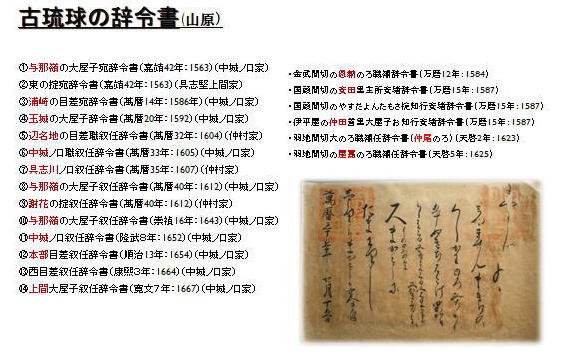 古琉球の辞令書(山原)
①与那嶺の大屋子宛辞令書(嘉靖42年:1563)(中城ノロ家)
②東の掟宛辞令書(嘉靖42年:1563)(具志堅上間家)
③浦崎の目差宛辞令書(萬暦14年:1586年)(中城ノロ家)
④玉城の大屋子辞令書(萬暦20年:1592)(中城ノロ家)
⑤辺名地の目差職叙任辞令書(萬暦32年:1604)(仲村家)
⑥中城ノロ職叙任辞令書(萬暦33年:1605)(中城ノロ家)
⑦具志川ノロ叙任辞令書(萬暦35年:1607)(仲村家)
⑧与那嶺大屋子叙任辞令書(萬暦40年:1612)(中城ノロ家)
⑨謝花の掟叙任辞令書(萬暦40年:1612)(仲村家)
⑩与那嶺大屋子叙任辞令書(崇禎16年:1643)(中城ノロ家)
⑪中城ノロ叙任辞令書(隆武8年:1652)(中城ノロ家)
⑫本部目差叙任辞令書(順治13年:1654)(中城ノロ家)
⑬西目差叙任辞令書(康熙3年:1664)(中城ノロ家)
⑭上間大屋子叙任辞令書(寛文7年:1667)(中城ノロ家)
・金武間切の恩納のろ職補辞令書(万暦12年:1584)
・国頭間切の安田里主所安堵辞令書(万暦15年:1587)
・国頭間切のやすたよんたもさ掟知行安堵辞令書(万暦15年:1587)
・伊平屋の仲田首里大屋子お知行安堵辞令書(万暦15年:1587)
・羽地間切大のろ職補任辞令書(仲尾のろ)(天啓2年:1623)
・羽地間切の屋嘉のろ職補任辞令書(天啓5年:1625)